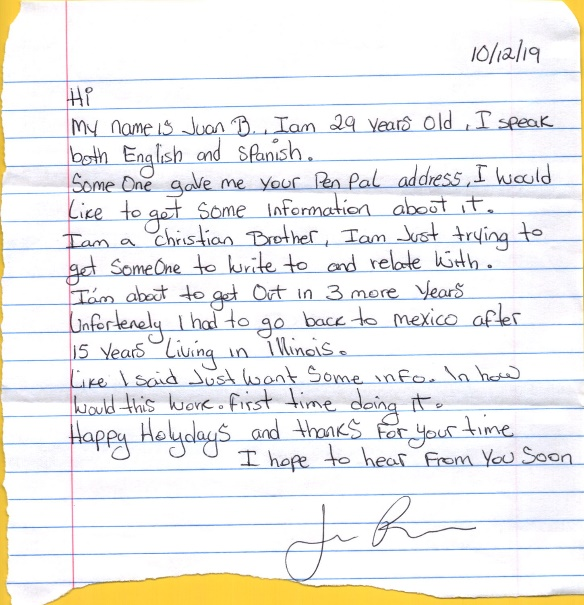 10/12/19
Hi
My name is Juan B., I am 29 years old, I speak
both English and Spanish.
Some One gave me your Pen Pal address, I would
Like to get some information about it.
I am a Christian Brother, I am Just trying to
get SomeOne to Write to and relate With.
I am about to get Out in 3 more Years
Unfortenely I had to go back to mexico after
15 years Living in Illinois.
Like I said Just want Some info. In how
Would this Work. First time doing it.
Happy Holydays and thanks For your time
I hope to hear From You Soon